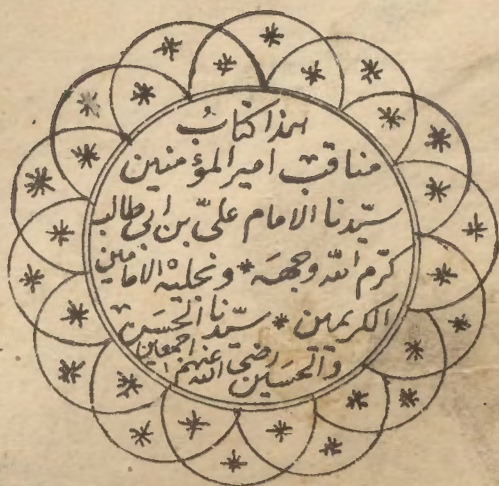 هذا كتابُ
مناقب امير المؤمنين
سيّدنا الامام علىّ بن ابى طالب
كرّم الله وجهه * ونجليه الامامين
الكريمين * سيّدنا الحسن
والحسين رضى الله عنهم اجمعين